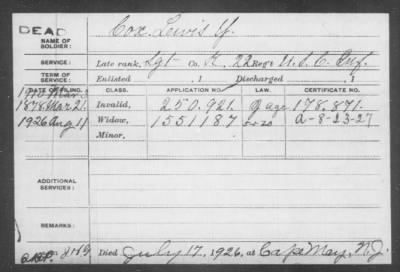 DEAD
NAME OF SOLDIER: Cox, Lewis Y.
SERVICE: Late rank, Sgt Co. K, 22 Reg't U.S.C. Inf.
TERM OF SERVICE: Enlisted , 1 Discharged , 1
DATE OF FILING. CLASS. APPLICATION NO. LAW. CERTIFICATE NO.
1910 Mar.
1878 Mar. 21. Invalid, 250.921. age 178.871.
1926 Aug 11 Widow, 1551187 A-8-23-27
Minor,
ADDITIONAL SERVICES:
REMARKS:
Died July 17, 1926, at Cape May, N.J.